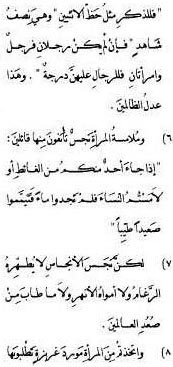 "فللذكر مثل حظ الأنثيين" وهي نصف
شاهد "فإن لم يكن رجلان فرجل
وامرأتان فللرجال عليهن درجة". وهذا
عدل الظالمين.
٦) وملامسة المرأة نجس تأنفون منها قائلين:
"إذا جاء أحد منكم من الغائط أو
لامستم النساء فلم تجدوا ماء فتيمموا
صعيداً طيباً"
٧) لكن نجس الأنجاس لا يطهره
الرغام ولا أمواه الأنهر ولا ما طاب من
صعد العالمين.
٨) واتخذتم من المرأة مورد غريزة تطلبونها